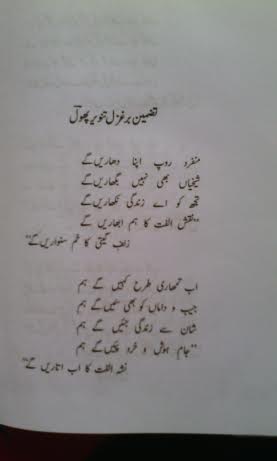 تضمین بر غزل تنویر پھول
منفرد روپ اپنا دھاریں گے
شیخیاں بھی نہیں بگھاریں گے
تجھ کو اے زندگی نکھاریں گے
"نقش الفت کا ہم ابھاریں گے
زلف گیتی کا خم سنواریں گے"
اب تمھاری طرح کہیں گے ہم
جیب و داماں کو بھی سئیں گے ہم
شان سے زندگی جئیں گے ہم
"جام ہوش و خرد پئیں گے ہم
نشہ الفت کا اب اتاریں گے"